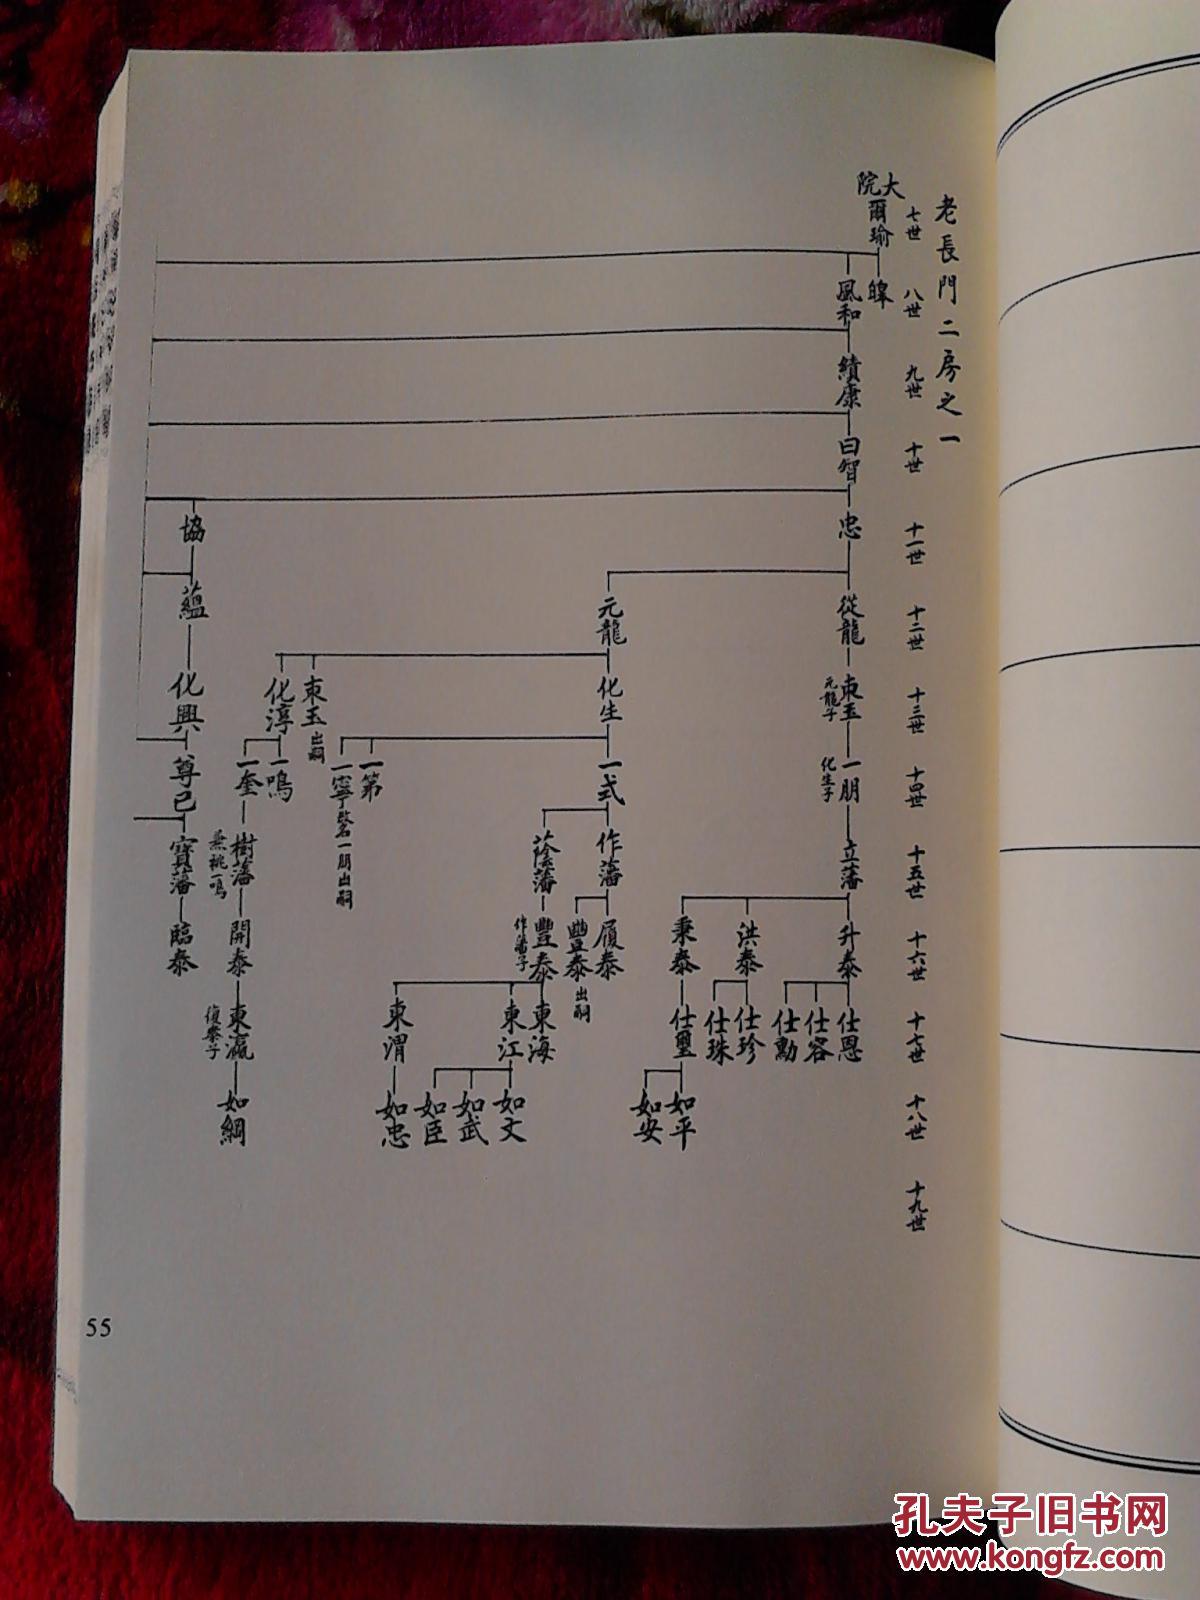 老長門二房之一
七世
八世
九世
十世
十一世
十二世
十三世
十四世
十五世
十六世
十七世
十八世
十九世
大院
爾瑜
皞
風和
績康
曰智
忠
從龍
東玉
元龍子
一朋
化生子
立藩
升泰
仕恩
仕容
仕勳
洪泰
仕珍
仕珠
秉泰
仕璽
如平
如安
元龍
化生
一式
作藩
履泰
豐泰
出嗣
蔭藩
豐泰
作藩子
東海
東江
如文
如武
如臣
東渭
如忠
一第
一寧
改名一朋出嗣
東玉
出嗣
化淳
一鳴
一奎
樹藩
兼祧一鳴
開泰
東瀛
復泰子
如綱
協
蘊
化興
尊已
寶藩
臨泰
55
孔夫子旧书网
www.kongfz.com